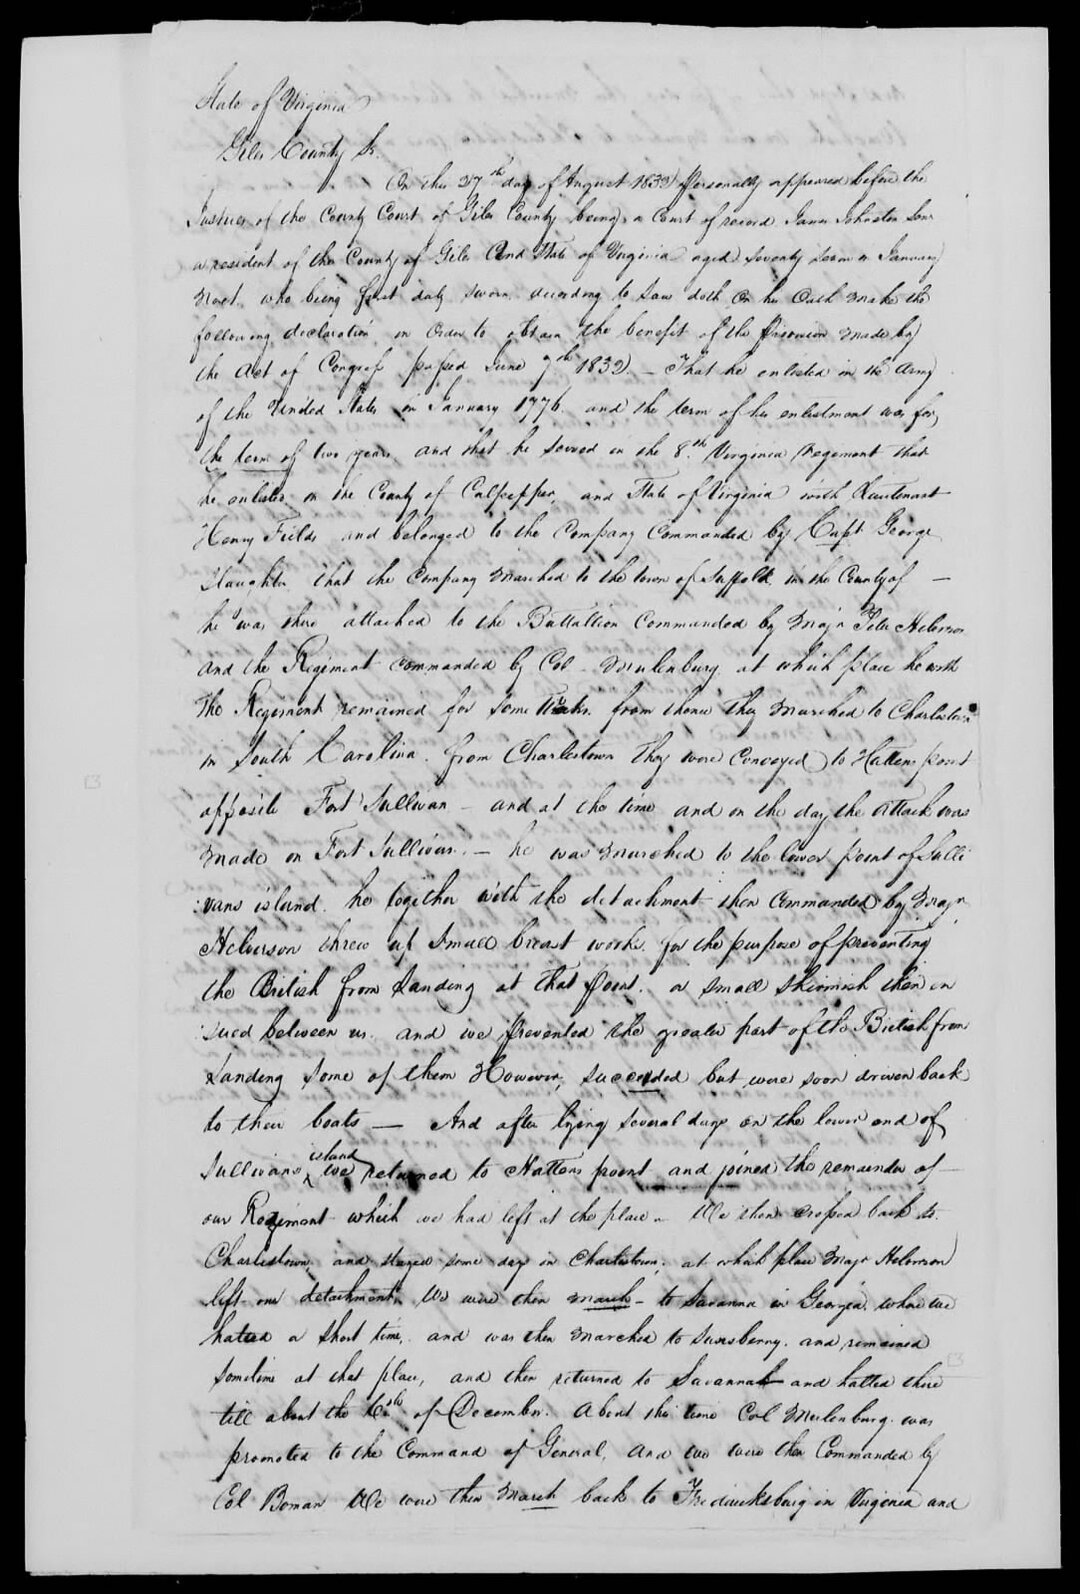 State of Virginia
Giles County Sc.
On this 27th day of August 1832 personally appeared before the
Justices of the County Court of Giles County being a Court of record James Johnston Senr
a resident of the County of Giles and State of Virginia aged seventy seven in January
next, who being first duly sworn according to Law doth on his Oath make the
following declaration in Order to obtain the benefit of the provision made by
the act of Congress passed June 7th 1832. – That he enlisted in the Army
of the United States in January 1776. and the term of his enlistment was for
the term of two years and that he served in the 8th Virginia Regiment that
he enlisted in the County of Culpepper, and State of Virginia with Lieutenant
Henry Fields and belonged to the Company Commanded by Capt George
Slaughter that the Company marched to the town of Suffolk in the County of —
he was there attached to the Battallion Commanded by Majr Peter Helverson
and the Regiment commanded by Col – Mulenburg at which place he with
the Regiment remained for some weeks. from thence they marched to Charlestown
in South Carolina. from Charlestown they were conveyed to Hattens point
opposite Fort Sullivan – and at the time and on the day the attack was
made on Fort Sullivan. – he was marched to the lower point of Sulli
:vans island. he together with the detachment then Commanded by Majr
Helverson threw up small breast works for the purpose of preventing
the British from Landing at that point. a small skirmish then en
:sued between us. and we prevented the greater part of the British from
Landing some of them However, succeeded but were soon driven back
to their boats — And after lying several days on the lower end of
Sullivans island we returned to Hattens point and joined the remainder of –
our Regiment which we had left at the place – We then crossed back to
Charlestown, and stayed some days in Charlestown; at which place Majr Helverson
left our detachment. We were then march – to Savanna in Georgia, where we
halted a short time, and was then marched to Sunsberry. and remained
sometime at that place, and then returned to Savannah and halted there
till about the 16th of December. About this time Col Mulenburg was
promoted to the Command of General, and we were then Commanded by
Col Boman We were then march back to Fredericksburg in Virginia and